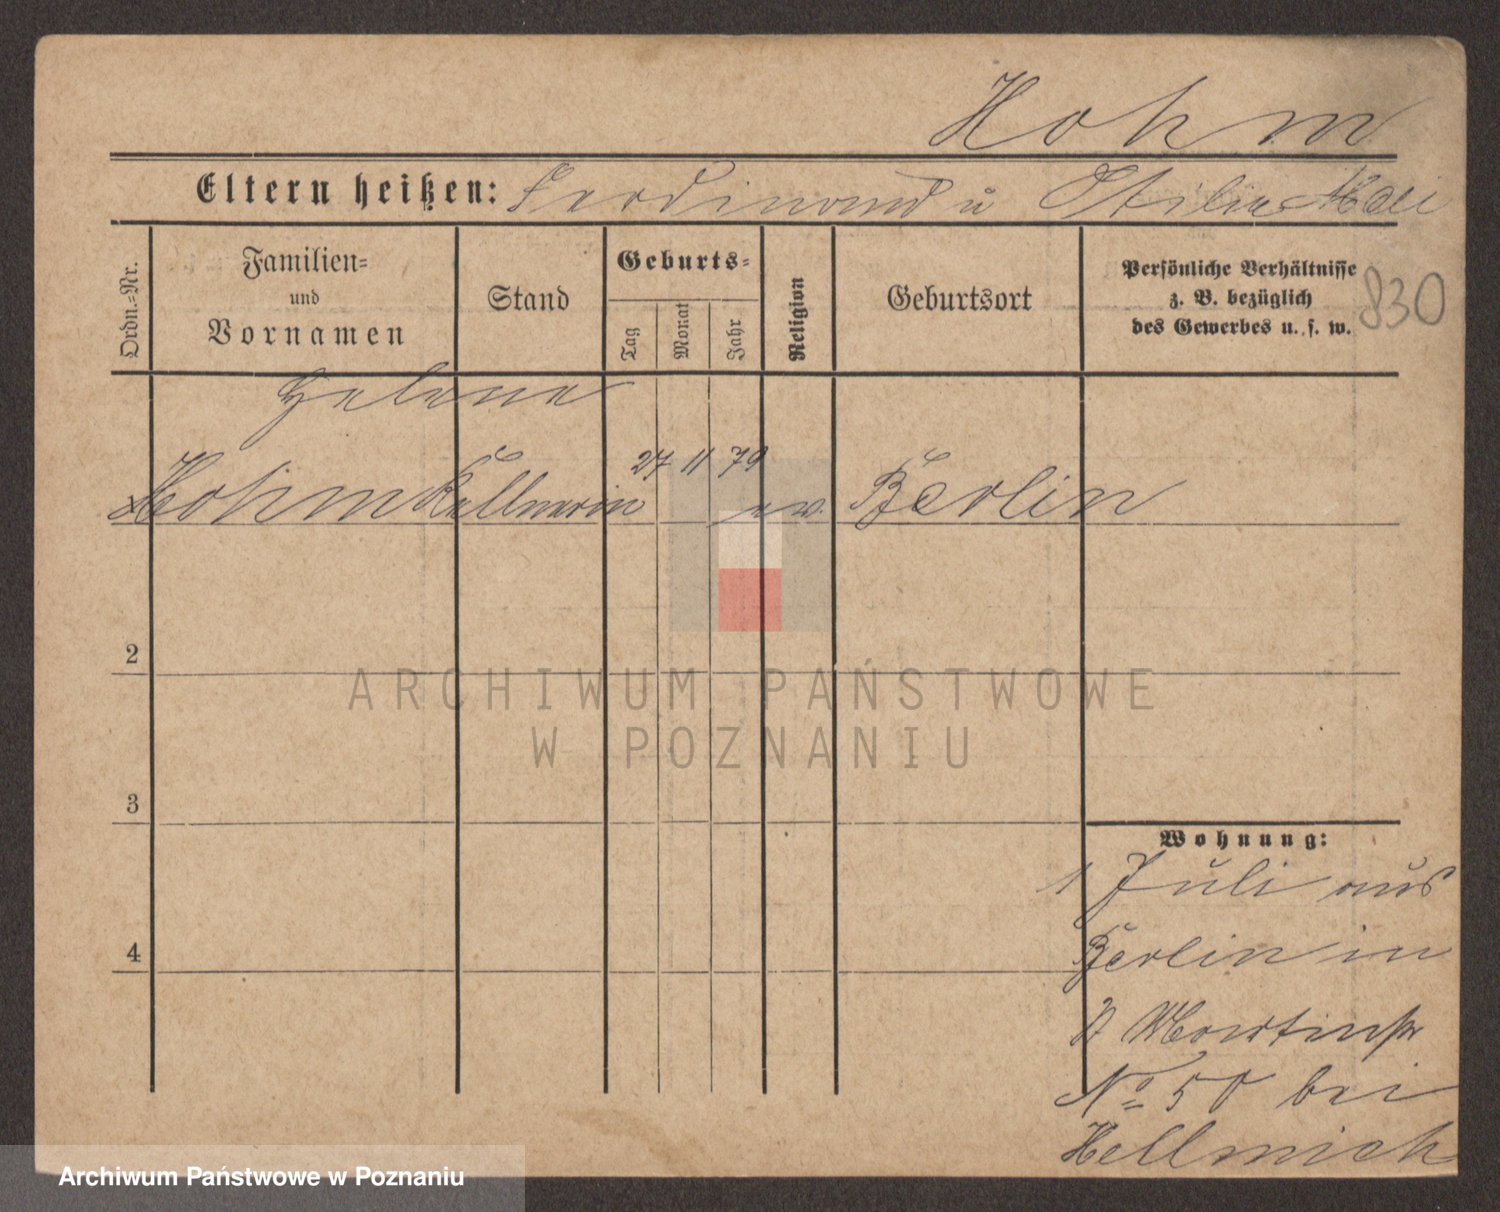 Hohm
Eltern heißen: Ferdinand u Otilie
Ordn.-Nr.
Familien-
und
Vornamen
Stand
Geburts-
Tag
Monat
Jahr
Religion
Geburtsort
Persönliche Verhältnisse
z. B. bezüglich
des Gewerbes u. s. w.
830
Helene
Hohm Kellnerin 27 11 79 ev. Berlin
2
3
4
Wohnung:
1 Juli aus
Berlin in
St Martinstr
No 50 bei
Hellmich
ARCHIWUM PAŃSTWOWE
W POZNANIU
Archiwum Państwowe w Poznaniu